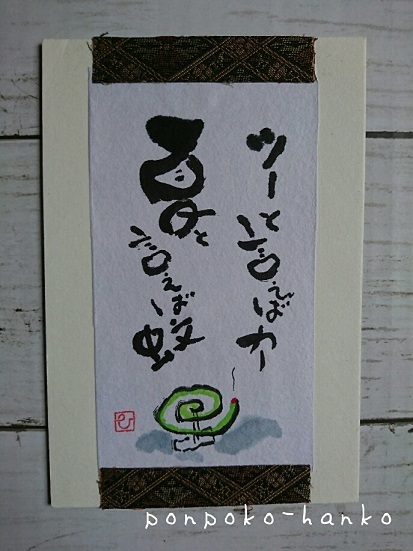 ツーと言えばカー
夏と言えば蚊
ひ
ponpoko-hanko